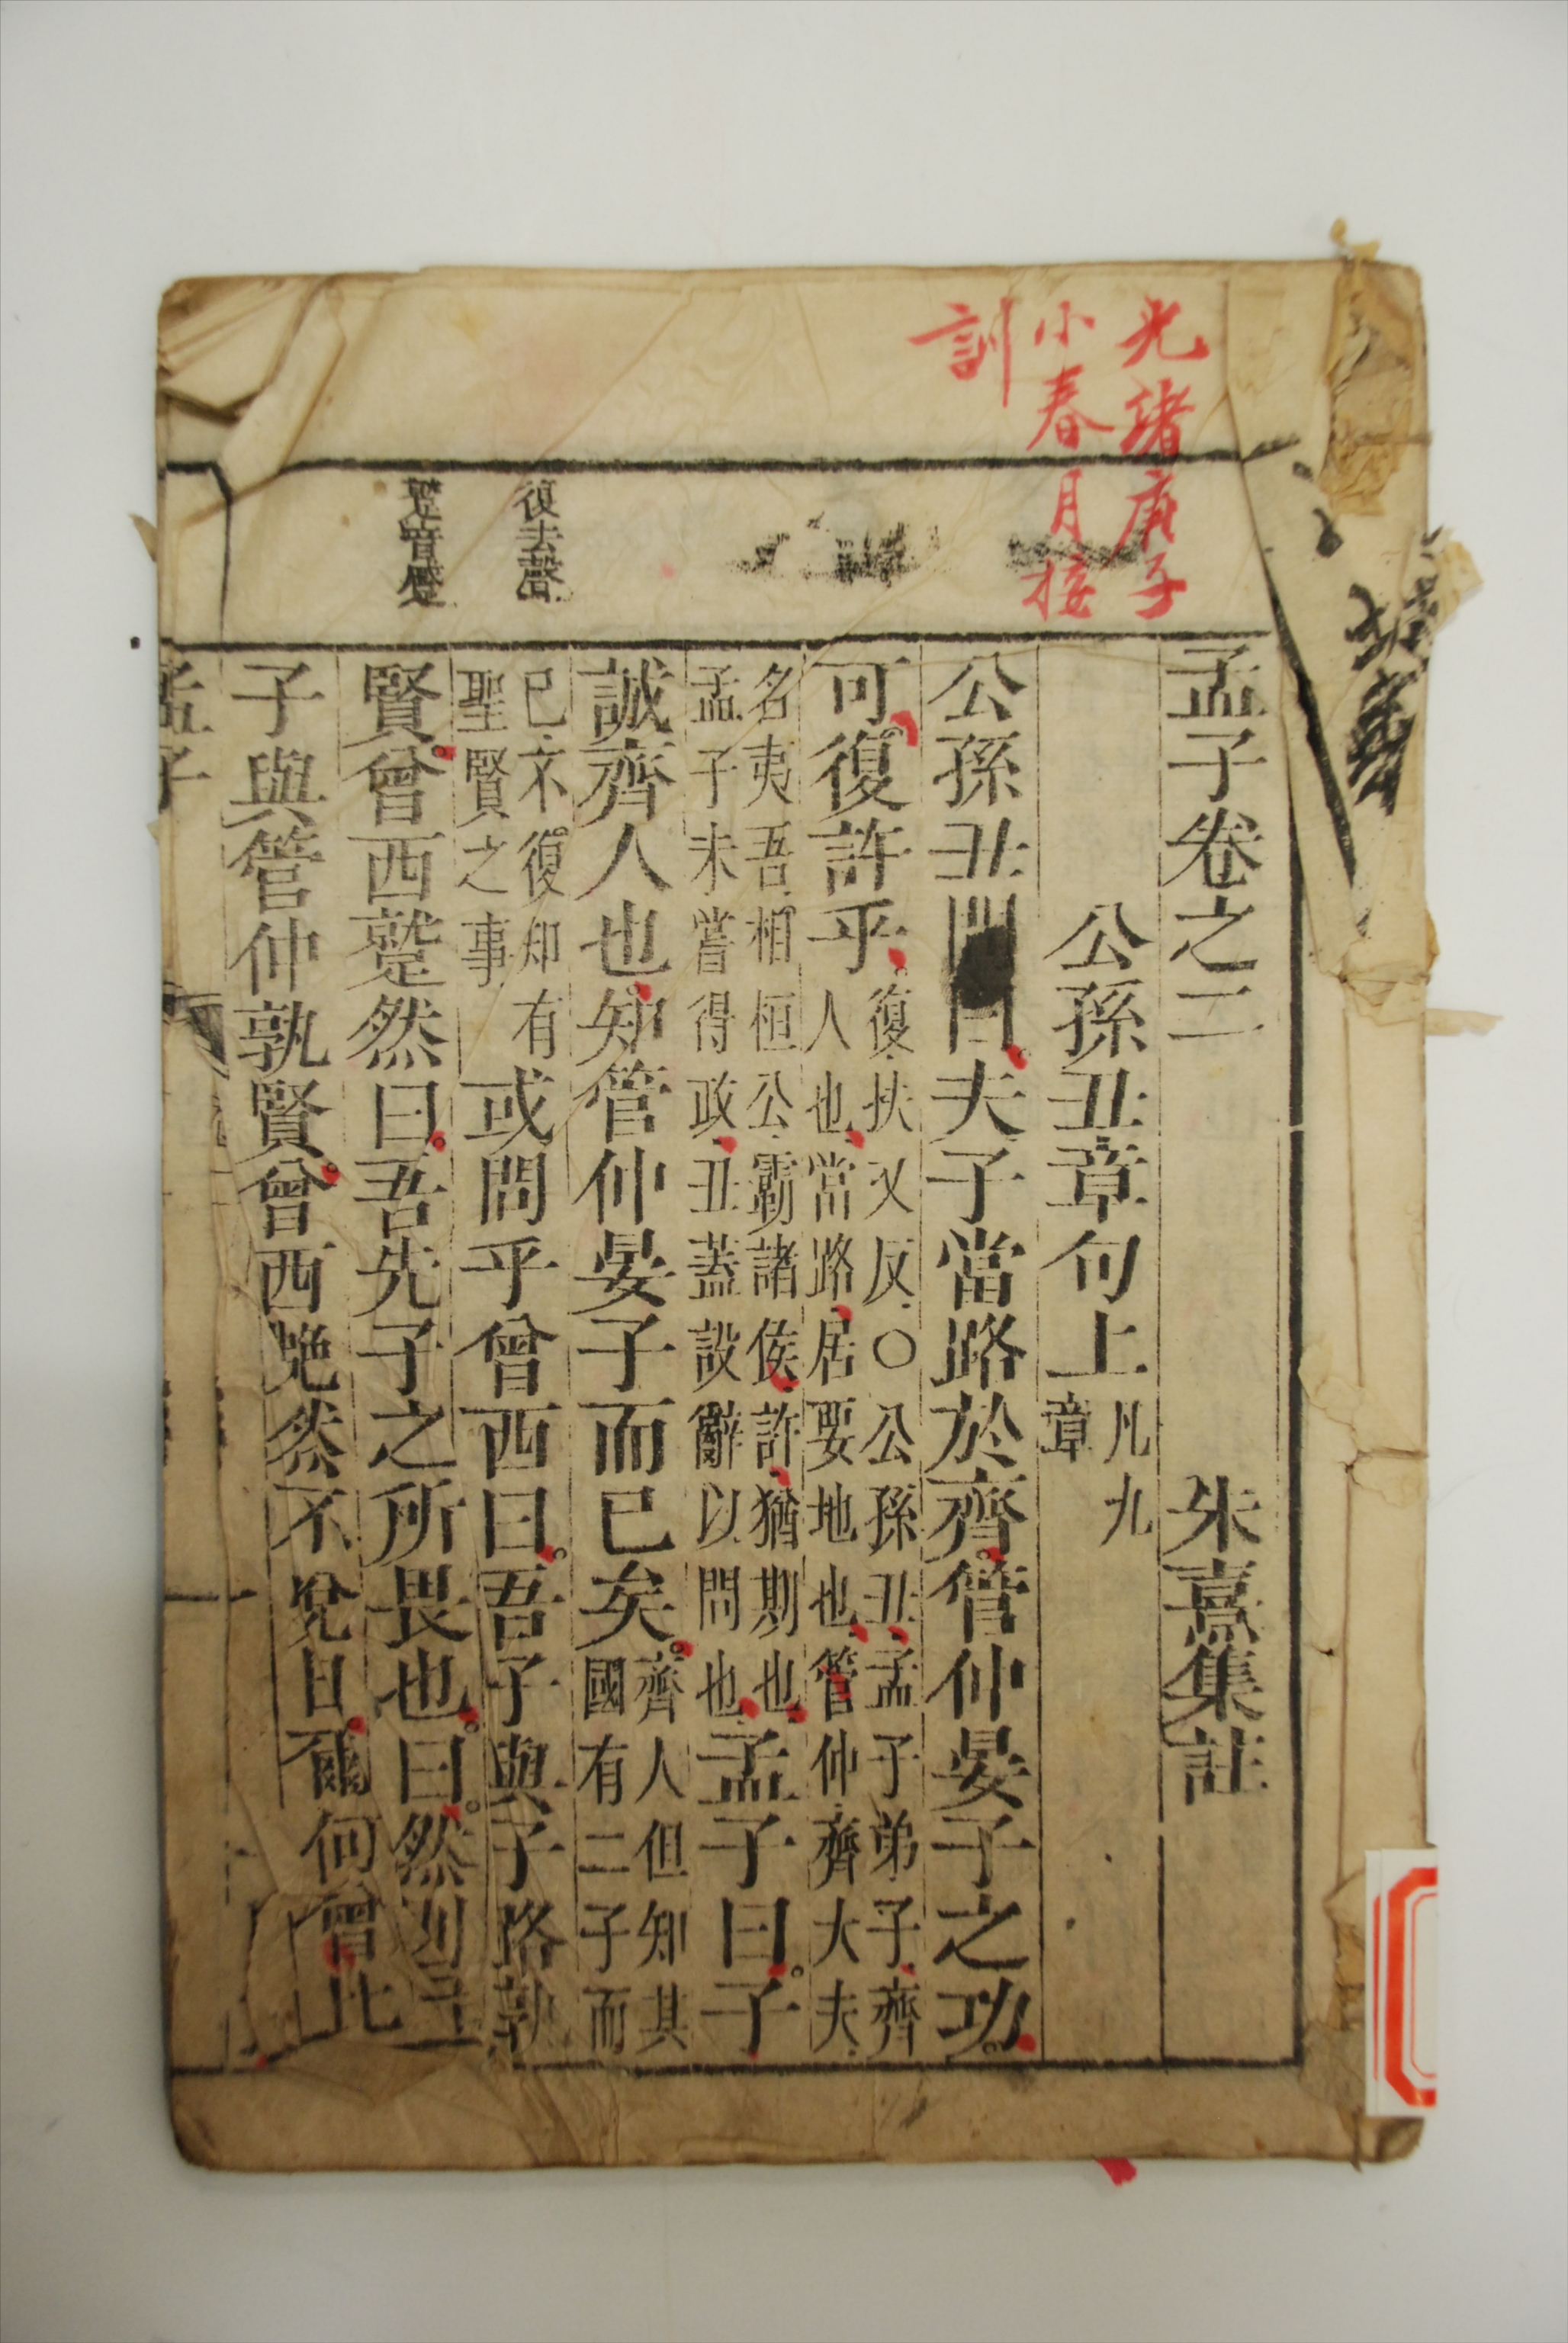 光緒庚子
小春月接
訓
復去聲
蹵音蹙
孟子卷之二 朱熹集註
公孫丑章句上 凡九章
公孫丑問曰夫子當路於齊管仲晏子之功
可復許乎 復扶又反○公孫丑孟子弟子齊
人也當路居要地也管仲齊大夫
名夷吾相桓公霸諸侯許猶期也
孟子未嘗得政丑蓋設辭以問也 孟子曰子
誠齊人也知管仲晏子而已矣 齊人但知其
國有二子而
已不復知有
聖賢之事 或問乎曾西曰吾子與子路孰
賢曾西蹵然曰吾先子之所畏也曰然則吾
子與管仲孰賢曾西艴然不悅曰爾何曾比
孟子